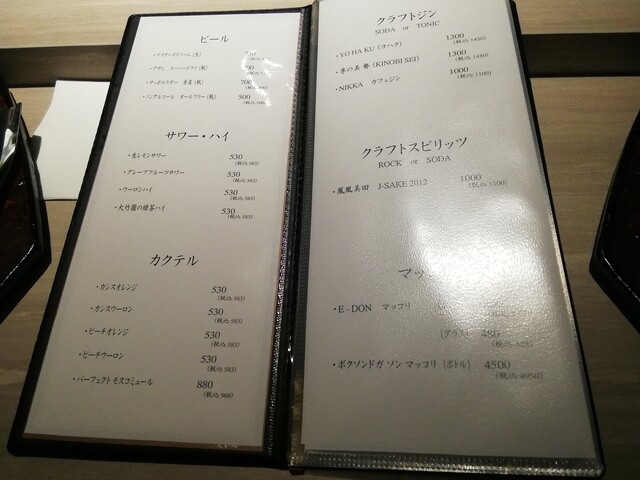 ビール
・マスターズドリーム (生)
・アサヒ スーパードライ (瓶)
・サッポロラガー 赤星 (瓶) 700
・ノンアルコール オールフリー (瓶) 500
サワー・ハイ
・生レモンサワー 530
(税込 583)
・グレープフルーツサワー 530
(税込 583)
・ウーロンハイ 530
(税込 583)
・大竹園の緑茶ハイ 530
(税込 583)
カクテル
・カシスオレンジ 530
(税込 583)
・カシスウーロン 530
(税込 583)
・ピーチオレンジ 530
(税込 583)
・ピーチウーロン 530
(税込 583)
・パーフェクト モスコミュール 880
(税込 968)
クラフトジン
SODA or TONIC
・YO HA KU (ヨハク) 1300
(税込 1430)
・季の美 勢 (KINOBI SEI) 1300
(税込 1430)
・NIKKA カフェジン 1000
(税込 1100)
クラフトスピリッツ
ROCK or SODA
・鳳凰美田 J-SAKE 2012 1000
(税込 1100)
マッ
・E-DON マッコリ
(グラス) 480
(税込 528)
・ボクソンドガ ソン マッコリ (ボトル) 4500
(税込 4950)